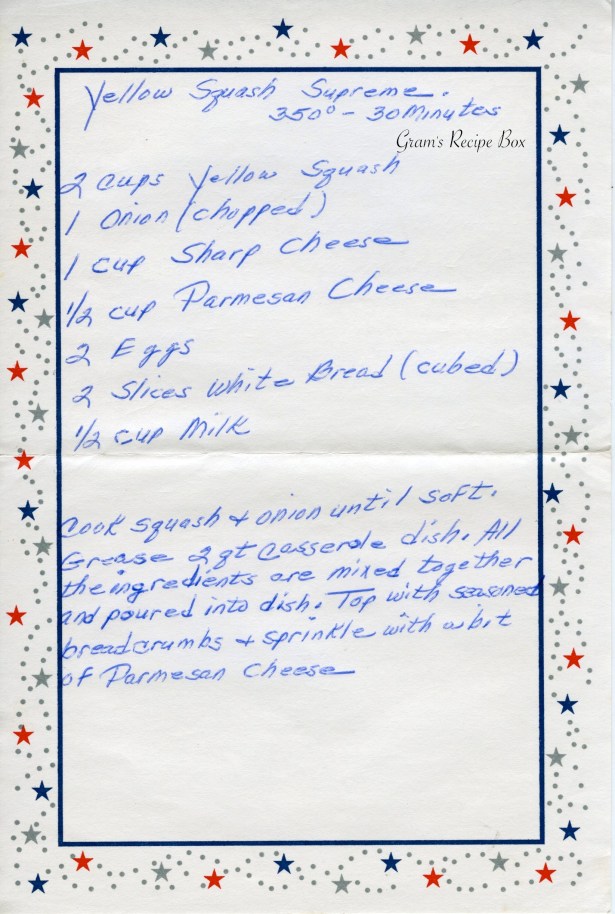 Yellow Squash Supreme.
350° - 30 Minutes
Gram's Recipe Box
2 cups Yellow Squash
1 Onion (chopped)
1 cup Sharp Cheese
1/2 cup Parmesan Cheese
2 Eggs
2 Slices White Bread (cubed)
1/2 cup Milk
Cook squash + onion until soft.
Grease 2 qt casserole dish. All
the ingredients are mixed together
and poured into dish. Top with seasoned
breadcrumbs + sprinkle with a bit
of Parmesan Cheese